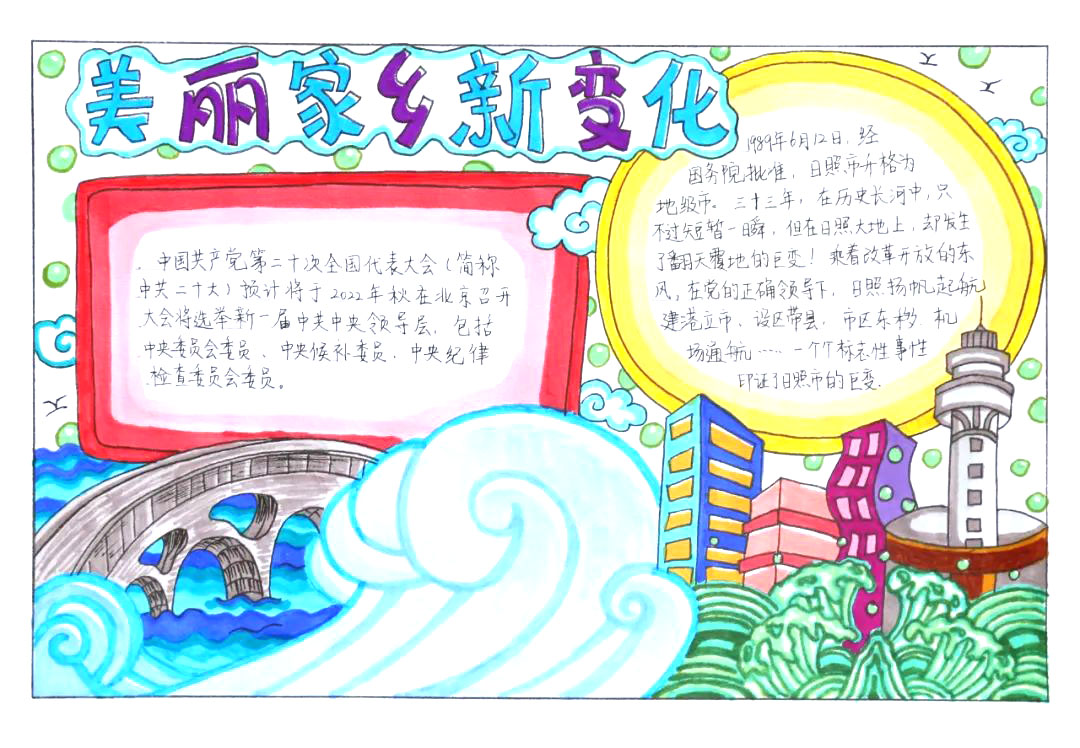 美丽家乡新变化
中国共产党第二十次全国代表大会(简称
中共二十大)预计将于2022年秋在北京召开
大会将选举新一届中共中央领导层,包括
中央委员会委员、中央候补委员、中央纪律
检查委员会委员。
1989年6月12日,经
国务院批准,日照市升格为
地级市。三十三年,在历史长河中,只
不过短暂一瞬,但在日照大地上,却发生
了翻天覆地的巨变!乘着改革开放的东
风,在党的正确领导下,日照扬帆起航
建港立市、设区带县,市区东移,机
场通航……一个个标志性事件
印证了日照市的巨变.